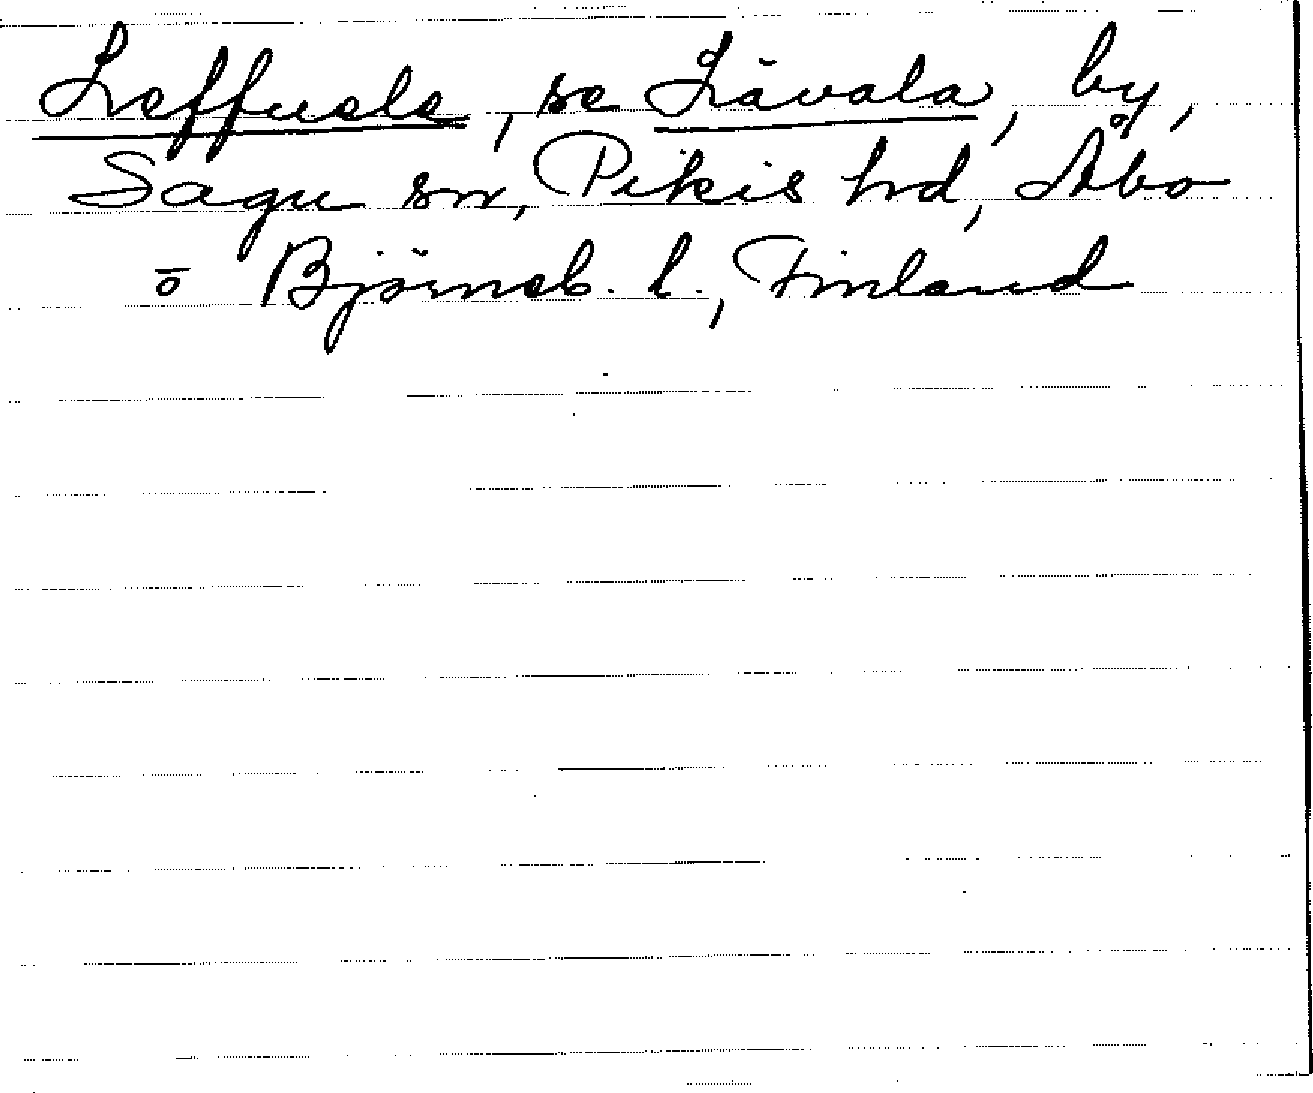 Leffuele, se Lävala, by,
Sagu sn, Pikis hd, Åbo
ō Björneb. l., Finland